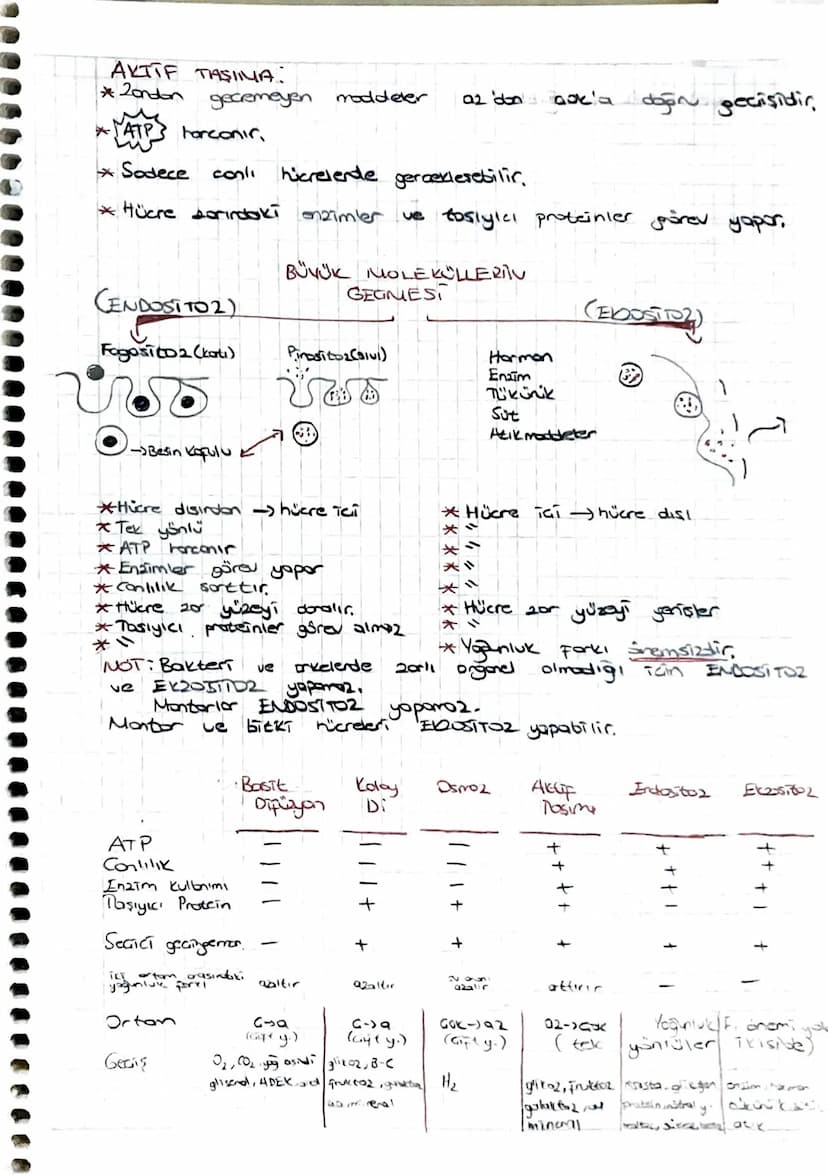 AKTİF TAŞIMA:
* Zardan geçemeyen maddeler az'dan çok'a doğru geçişidir.
* ATP harcanır.
* Sadece canlı hücrelerde gerçekleşebilir.
* Hücre zarındaki enzimler ve taşıyıcı proteinler görev yapar.
BÜYÜK MOLEKÜLLERİN
GEÇMESİ
(ENDOSİTOZ) (EKZOSİTOZ)
Fagositoz (katı) Pinositoz (sıvı)
Hormon
Enzim
Tükürük
Süt
Atık maddeler
→ Besin Kofulu
* Hücre dışından → hücre içi
* Tek yönlü
* ATP harcanır
* Enzimler görev yapar
* Canlılık şarttır.
* Hücre zar yüzeyi daralır.
* Taşıyıcı proteinler görev almaz
* "
* Hücre içi → hücre dışı
* "
* "
* "
* "
* Hücre zar yüzeyi genişler
* "
* Yoğunluk farkı önemsizdir.
NOT: Bakteri ve arkelerde zarlı organel olmadığı için ENDOSİTOZ
ve EKZOSİTOZ yapamaz.
Mantarlar ENDOSİTOZ yapamaz.
Mantar ve bitki hücreleri EKZOSİTOZ yapabilir.
Basit Difüzyon Kolay Di Osmoz Aktif Taşıma Endositoz Ekzositoz
ATP — — — + + +
Canlılık — — — + + +
Enzim Kullanımı — — — + + +
Taşıyıcı Protein — + + + — —
Seçici geçirgen — + + + + +
İki ortam arasındaki
yoğunluk farkı azaltır azaltır azaltır arttırır — —
Ortam Ç→a Ç→a ÇOK→az az→çok Yoğunluk F. önemi yok
(çift y.) (çift y.) (çift y.) (tek yönlüler ikiside)
Geçiş O2, CO2, yağ asidi glikoz, B-C
gliserol, ADEK fruktoz, H2 glikoz, fruktoz
mineral galaktoz
mineral